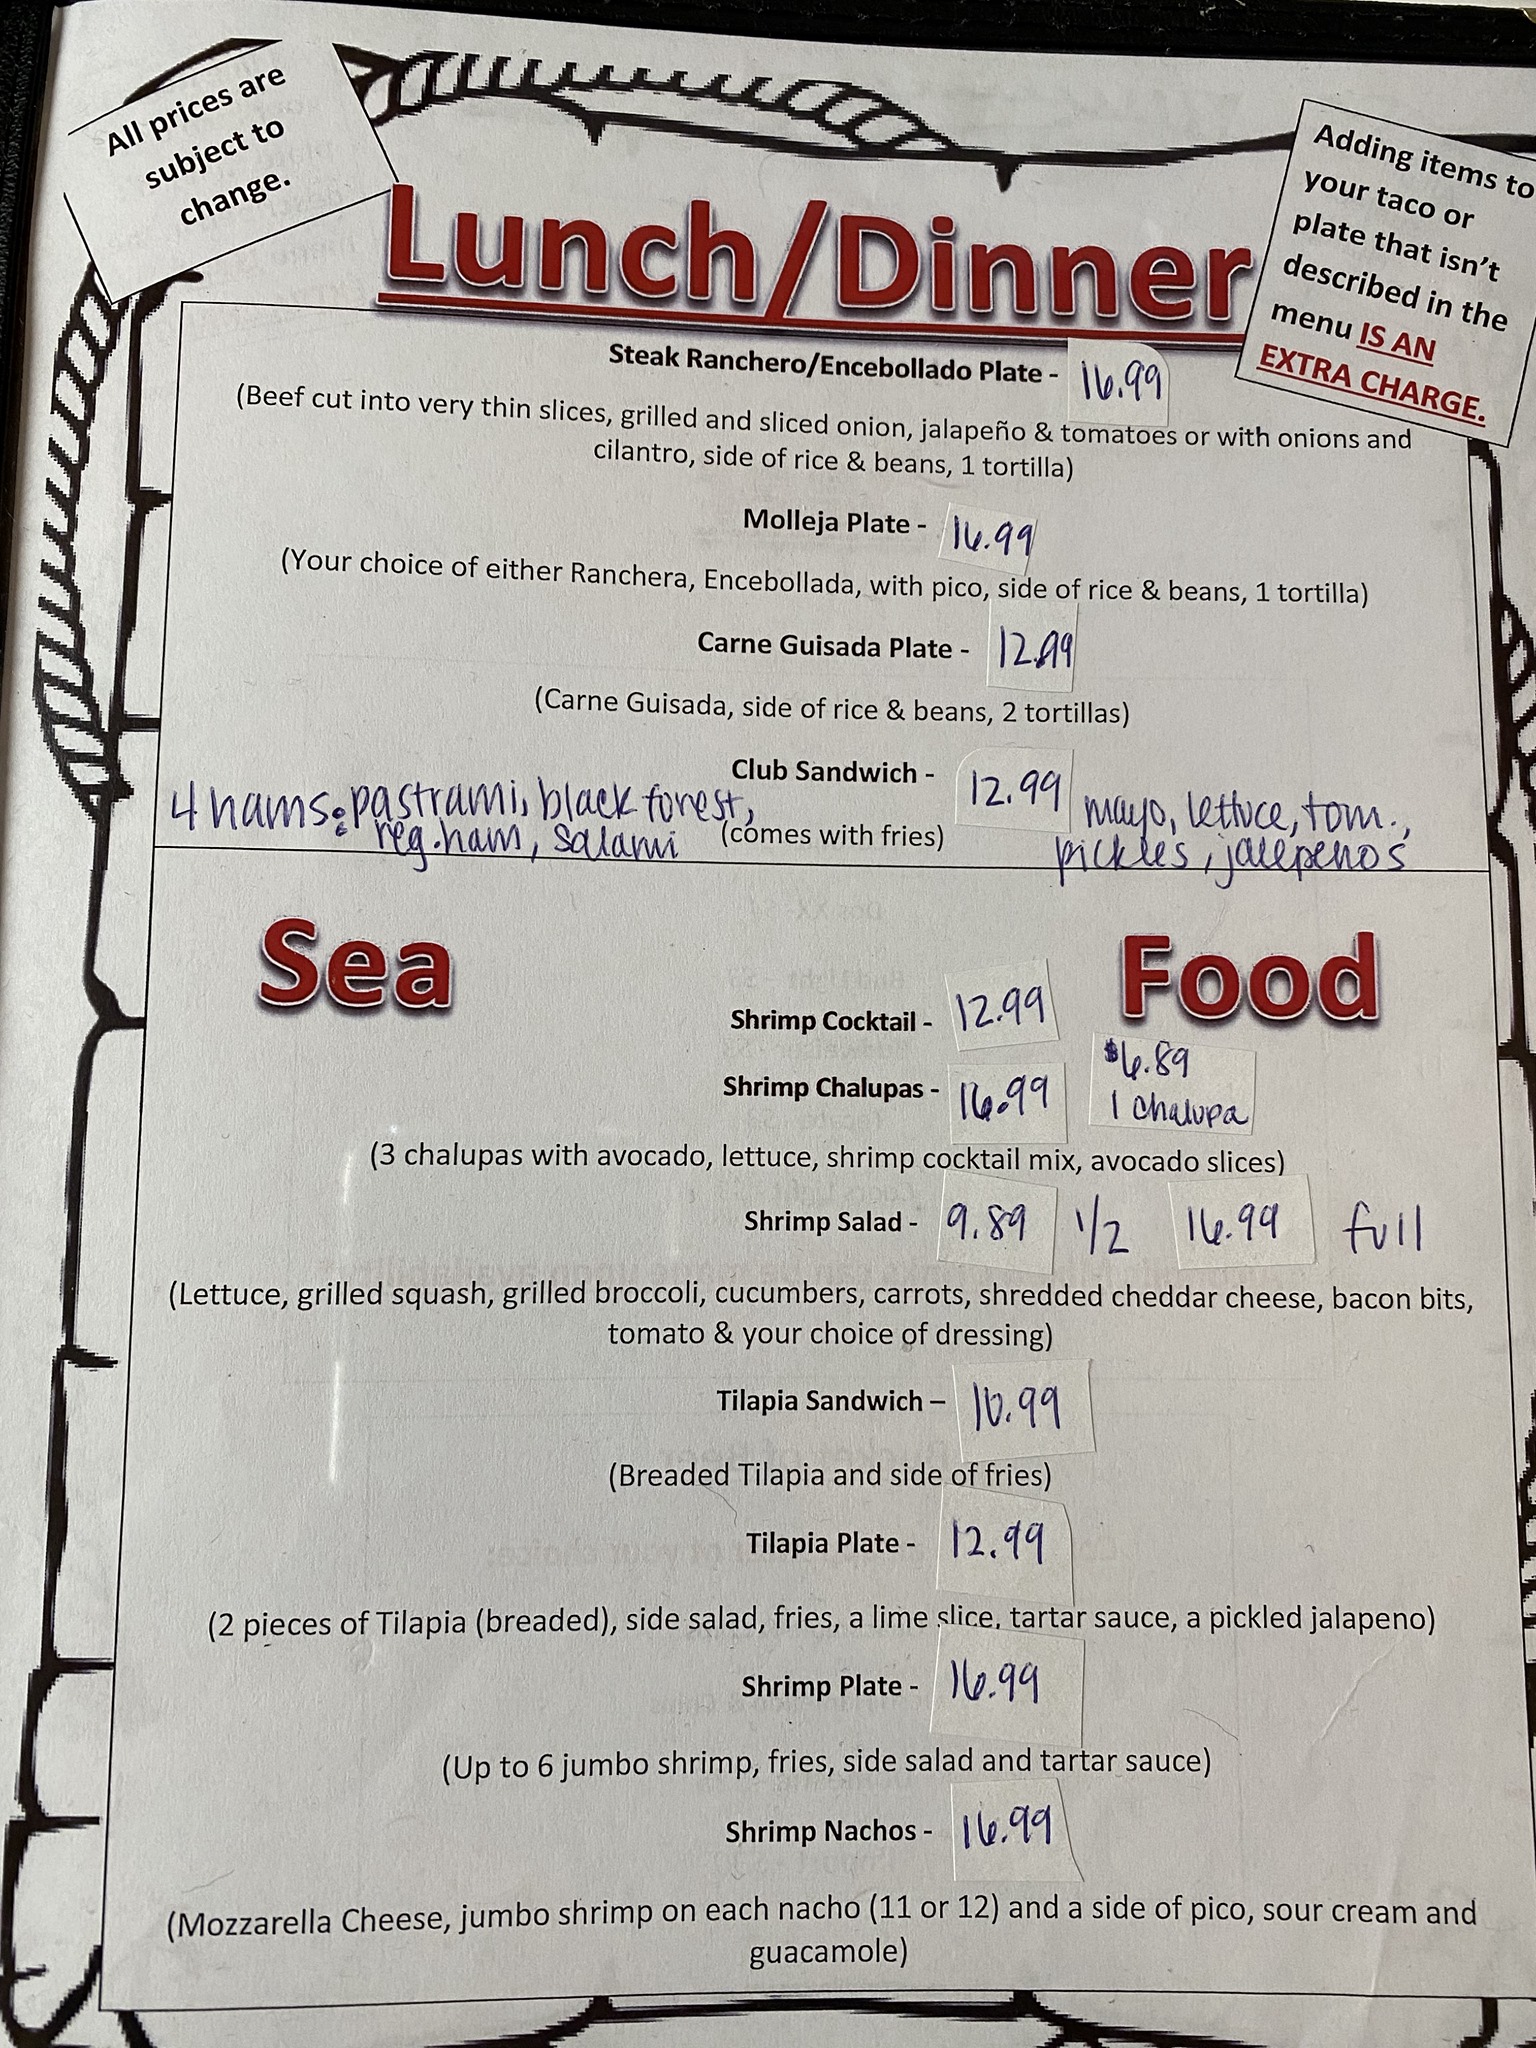 All prices are
subject to
change.
Adding items to
your taco or
plate that isn't
described in the
menu IS AN
EXTRA CHARGE.
Lunch/Dinner
Steak Ranchero/Encebollado Plate - 16.99
(Beef cut into very thin slices, grilled and sliced onion, jalapeño & tomatoes or with onions and
cilantro, side of rice & beans, 1 tortilla)
Molleja Plate - 16.99
(Your choice of either Ranchera, Encebollada, with pico, side of rice & beans, 1 tortilla)
Carne Guisada Plate - 12.99
(Carne Guisada, side of rice & beans, 2 tortillas)
Club Sandwich - 12.99
4 hams: pastrami, black forest,
reg. ham, salami
(comes with fries)
mayo, lettuce, tom.,
pickles, jalepenos
Sea Food
Shrimp Cocktail - 12.99
Shrimp Chalupas - 16.99
$6.89
1 chalupa
(3 chalupas with avocado, lettuce, shrimp cocktail mix, avocado slices)
Shrimp Salad - 9.89 1/2 16.99 full
(Lettuce, grilled squash, grilled broccoli, cucumbers, carrots, shredded cheddar cheese, bacon bits,
tomato & your choice of dressing)
Tilapia Sandwich – 10.99
(Breaded Tilapia and side of fries)
Tilapia Plate - 12.99
(2 pieces of Tilapia (breaded), side salad, fries, a lime slice, tartar sauce, a pickled jalapeno)
Shrimp Plate - 16.99
(Up to 6 jumbo shrimp, fries, side salad and tartar sauce)
Shrimp Nachos - 16.99
(Mozzarella Cheese, jumbo shrimp on each nacho (11 or 12) and a side of pico, sour cream and
guacamole)